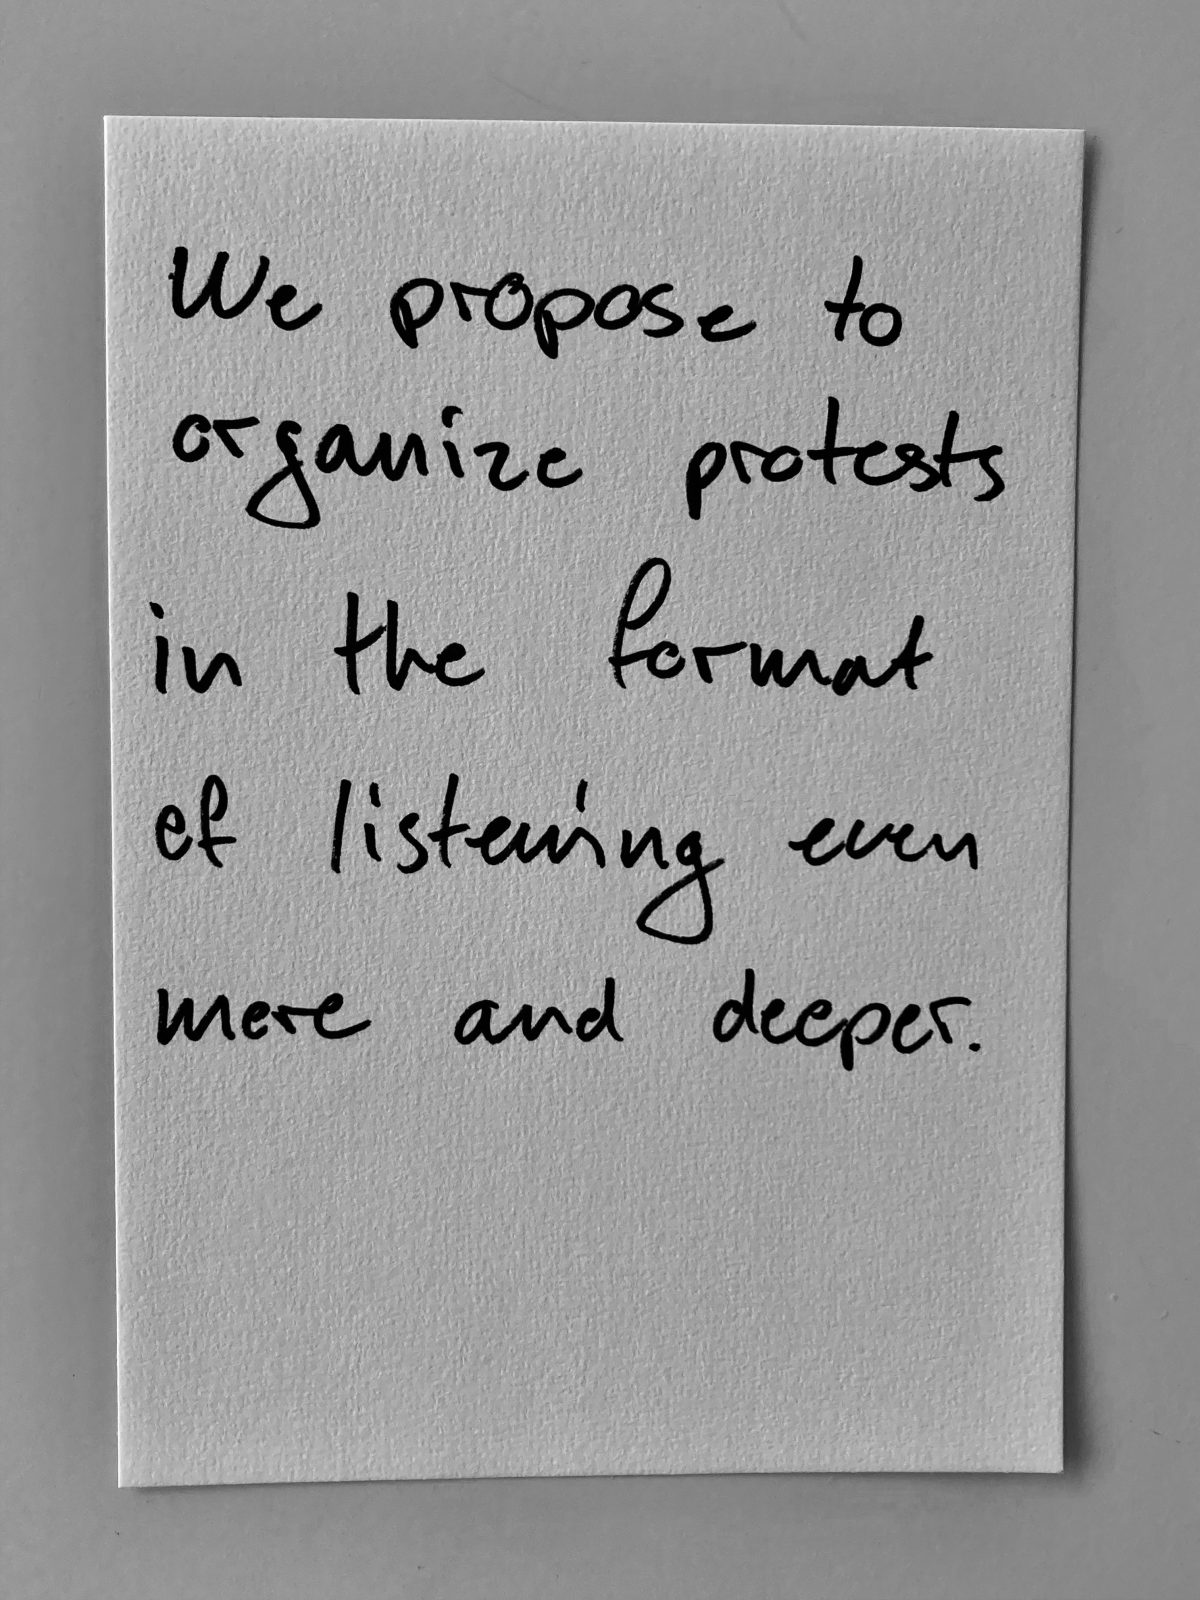 We propose to
organize protests
in the format
of listening even
more and deeper.